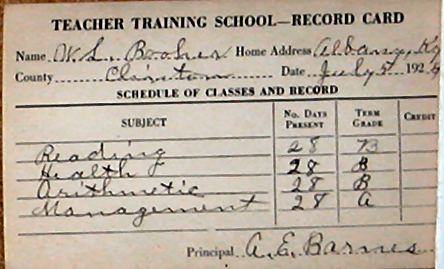 TEACHER TRAINING SCHOOL—RECORD CARD
Name W. L. Home Address Albany, Ky
County Clinton Date July 5 192
SCHEDULE OF CLASSES AND RECORD
SUBJECT No. Days Present Term Grade Credit
Reading 28 73
Health 28 B
Arithmetic 28 B
Management 28 A
Principal A. E. Barnes